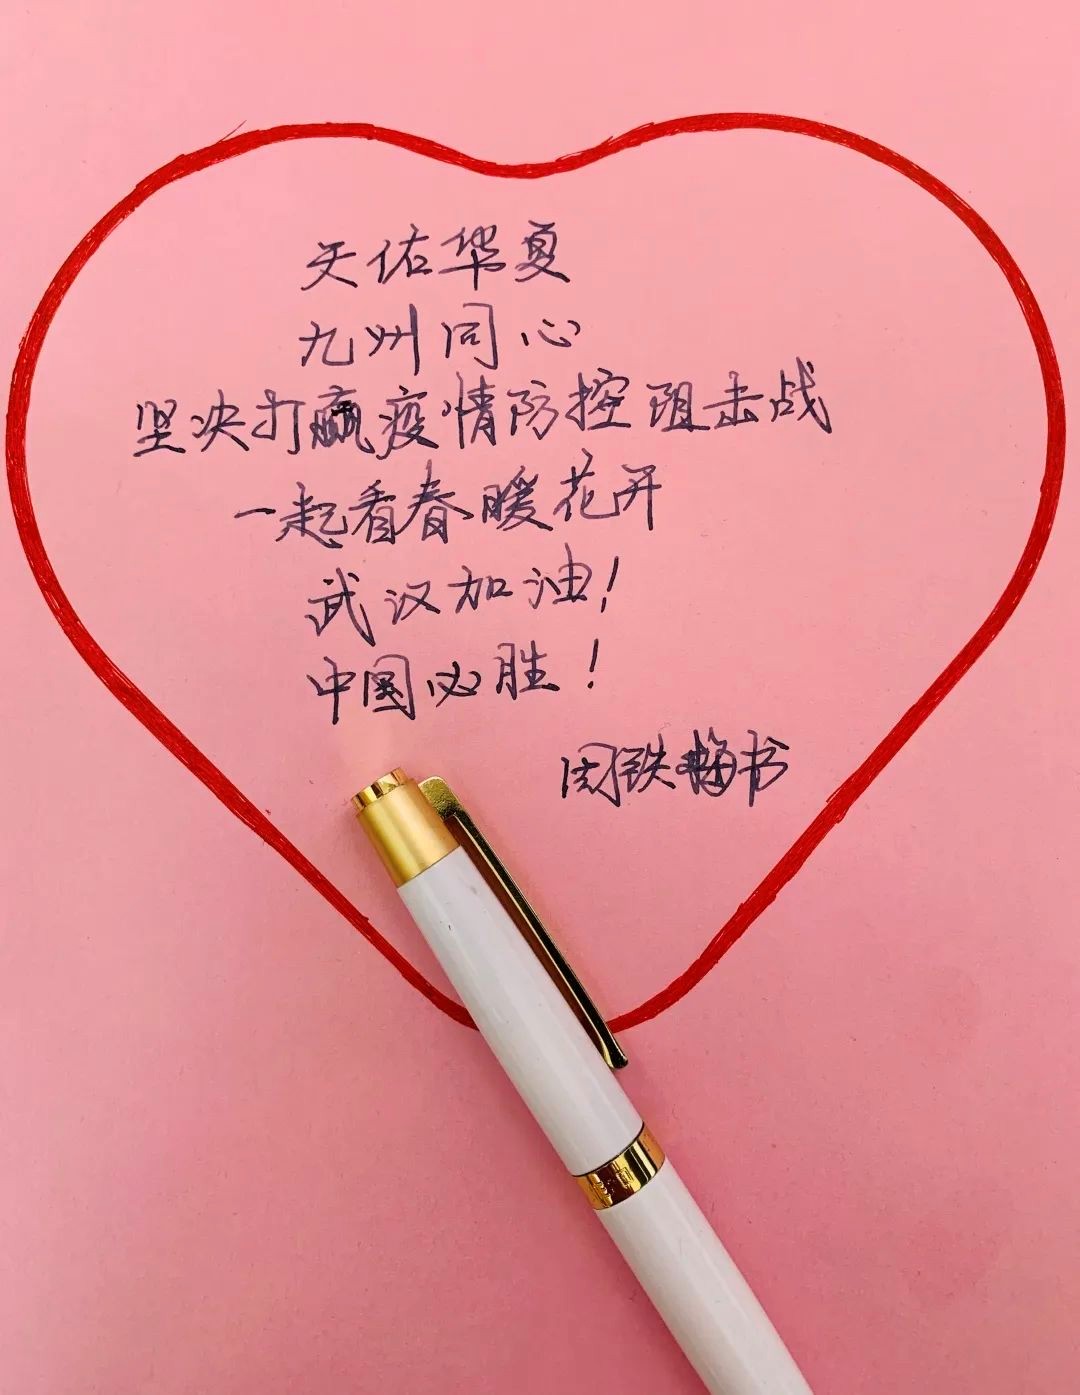 天佑华夏
九州同心
坚决打赢疫情防控阻击战
一起看春暖花开
武汉加油！
中国必胜！
周铁梅书